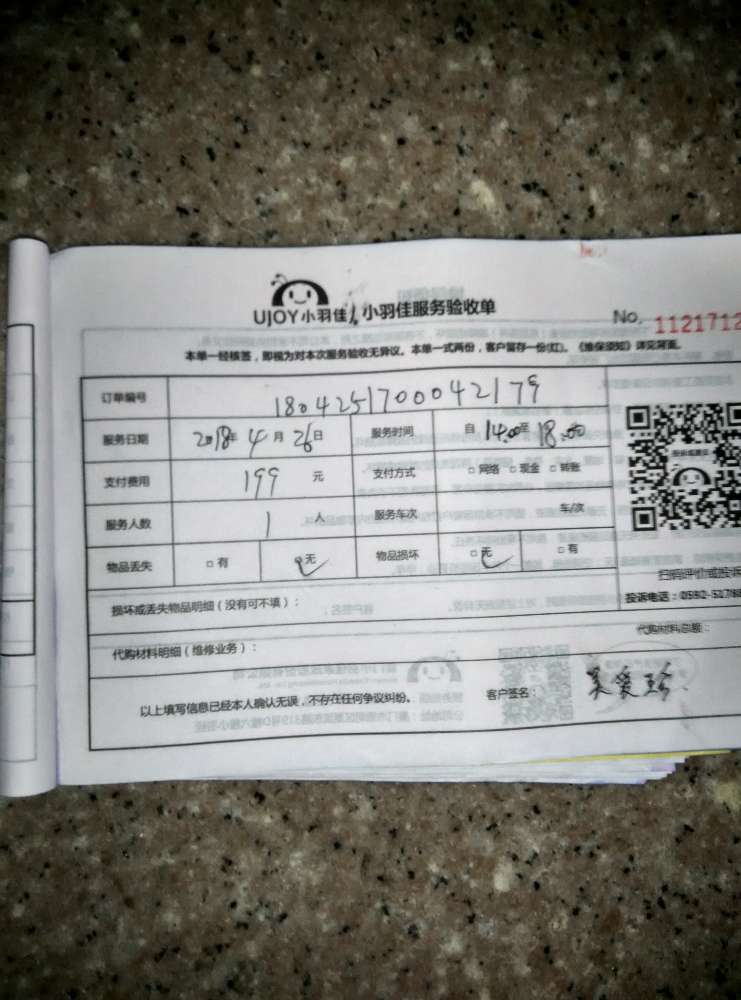 UJOY小羽佳 小羽佳服务验收单
No. 1121712
本单一经核签，即视为对本次服务验收无异议。本单一式两份，客户留存一份(红)。《维保须知》详见背面。
订单编号 1804251700042179
服务日期 2018年 4 月 26 日 服务时间 自 14:00 至 18:00
支付费用 199 元 支付方式 □ 网络 □ 现金 □ 转账
服务人数 1 人 服务车次 车/次
物品丢失 □ 有 □ 无 物品损坏 □ 无 □ 有
扫码评价或投诉
投诉电话：0592-5178
损坏或丢失物品明细（没有可不填）：
代购材料明细（维修业务）： 代购材料总额：
以上填写信息已经本人确认无误，不存在任何争议纠纷。 客户签名：